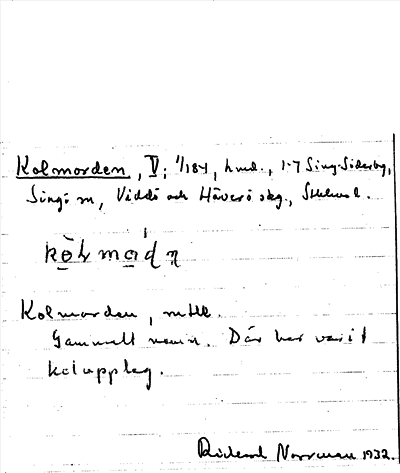 Kolmorden, V; 1/184, hmd., 1-7 Sing-Söderby,
Singö sn, Väddö och Häverö skg., Sthlms l.
Kolmorden, mtll.
Gammalt namn. Där har varit
kolupplag.
Rickard Norrman 1932.